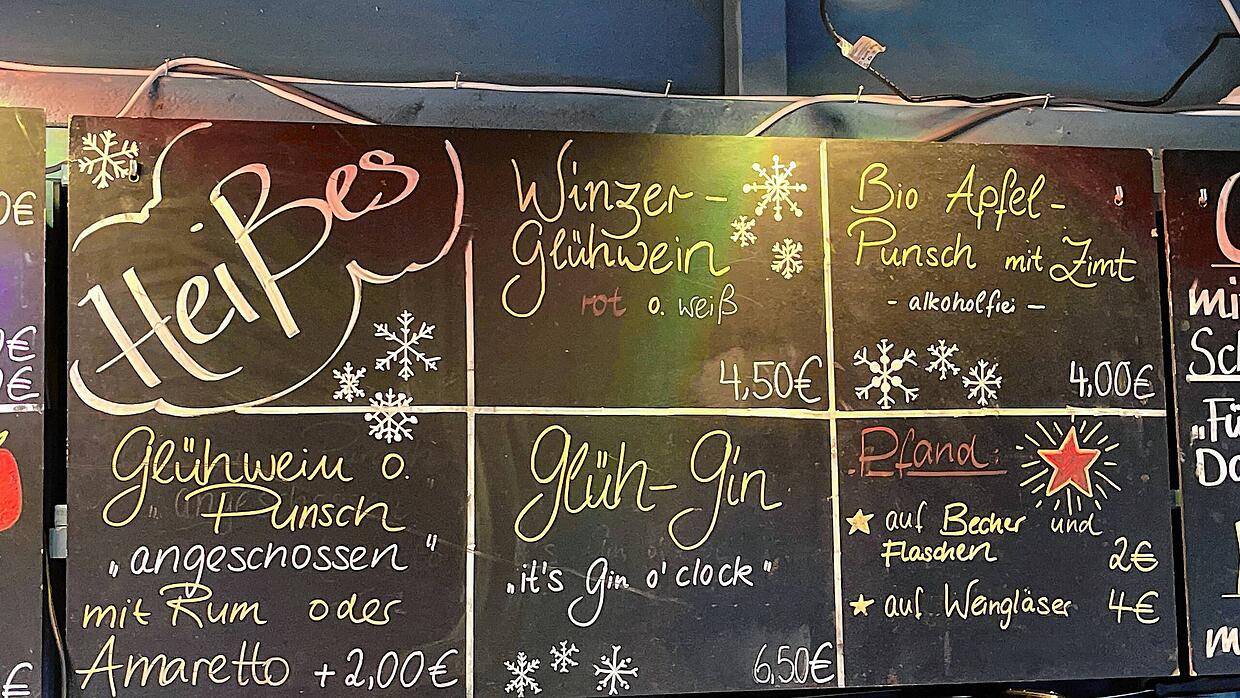 Heißes
Winzer-
Glühwein
rot o. weiß
4,50€
Bio Apfel-
Punsch mit Zimt
- alkoholfiei -
4,00€
Glühwein o.
Punsch
„angeschossen"
mit Rum oder
Amaretto +2,00€
Glüh-Gin
„it's Gin o'clock"
6,50€
Pfand:
auf Becher und
Flaschen 2€
auf Weingläser 4€
0€
€
€
€
mi
Sc
„Fü
Do
m